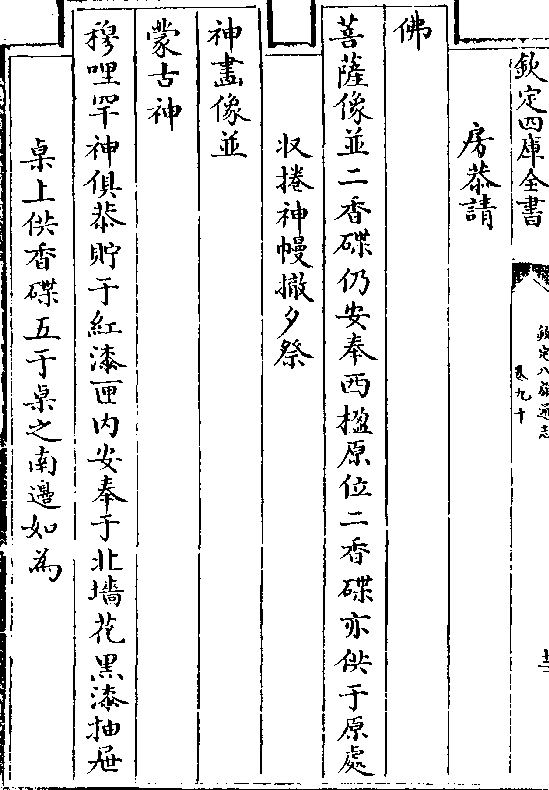 欽定四庫全書
欽定八旗通志
卷九十
房恭請
佛
菩薩像並二香碟仍安奉西楹原位二香碟亦供于原處
収捲神幔撤夕祭
神畫像並
蒙古神
穆哩罕神俱恭貯于紅漆匣内安奉于北墻花黑漆抽屜
桌上供香碟五于桌之南邉如為